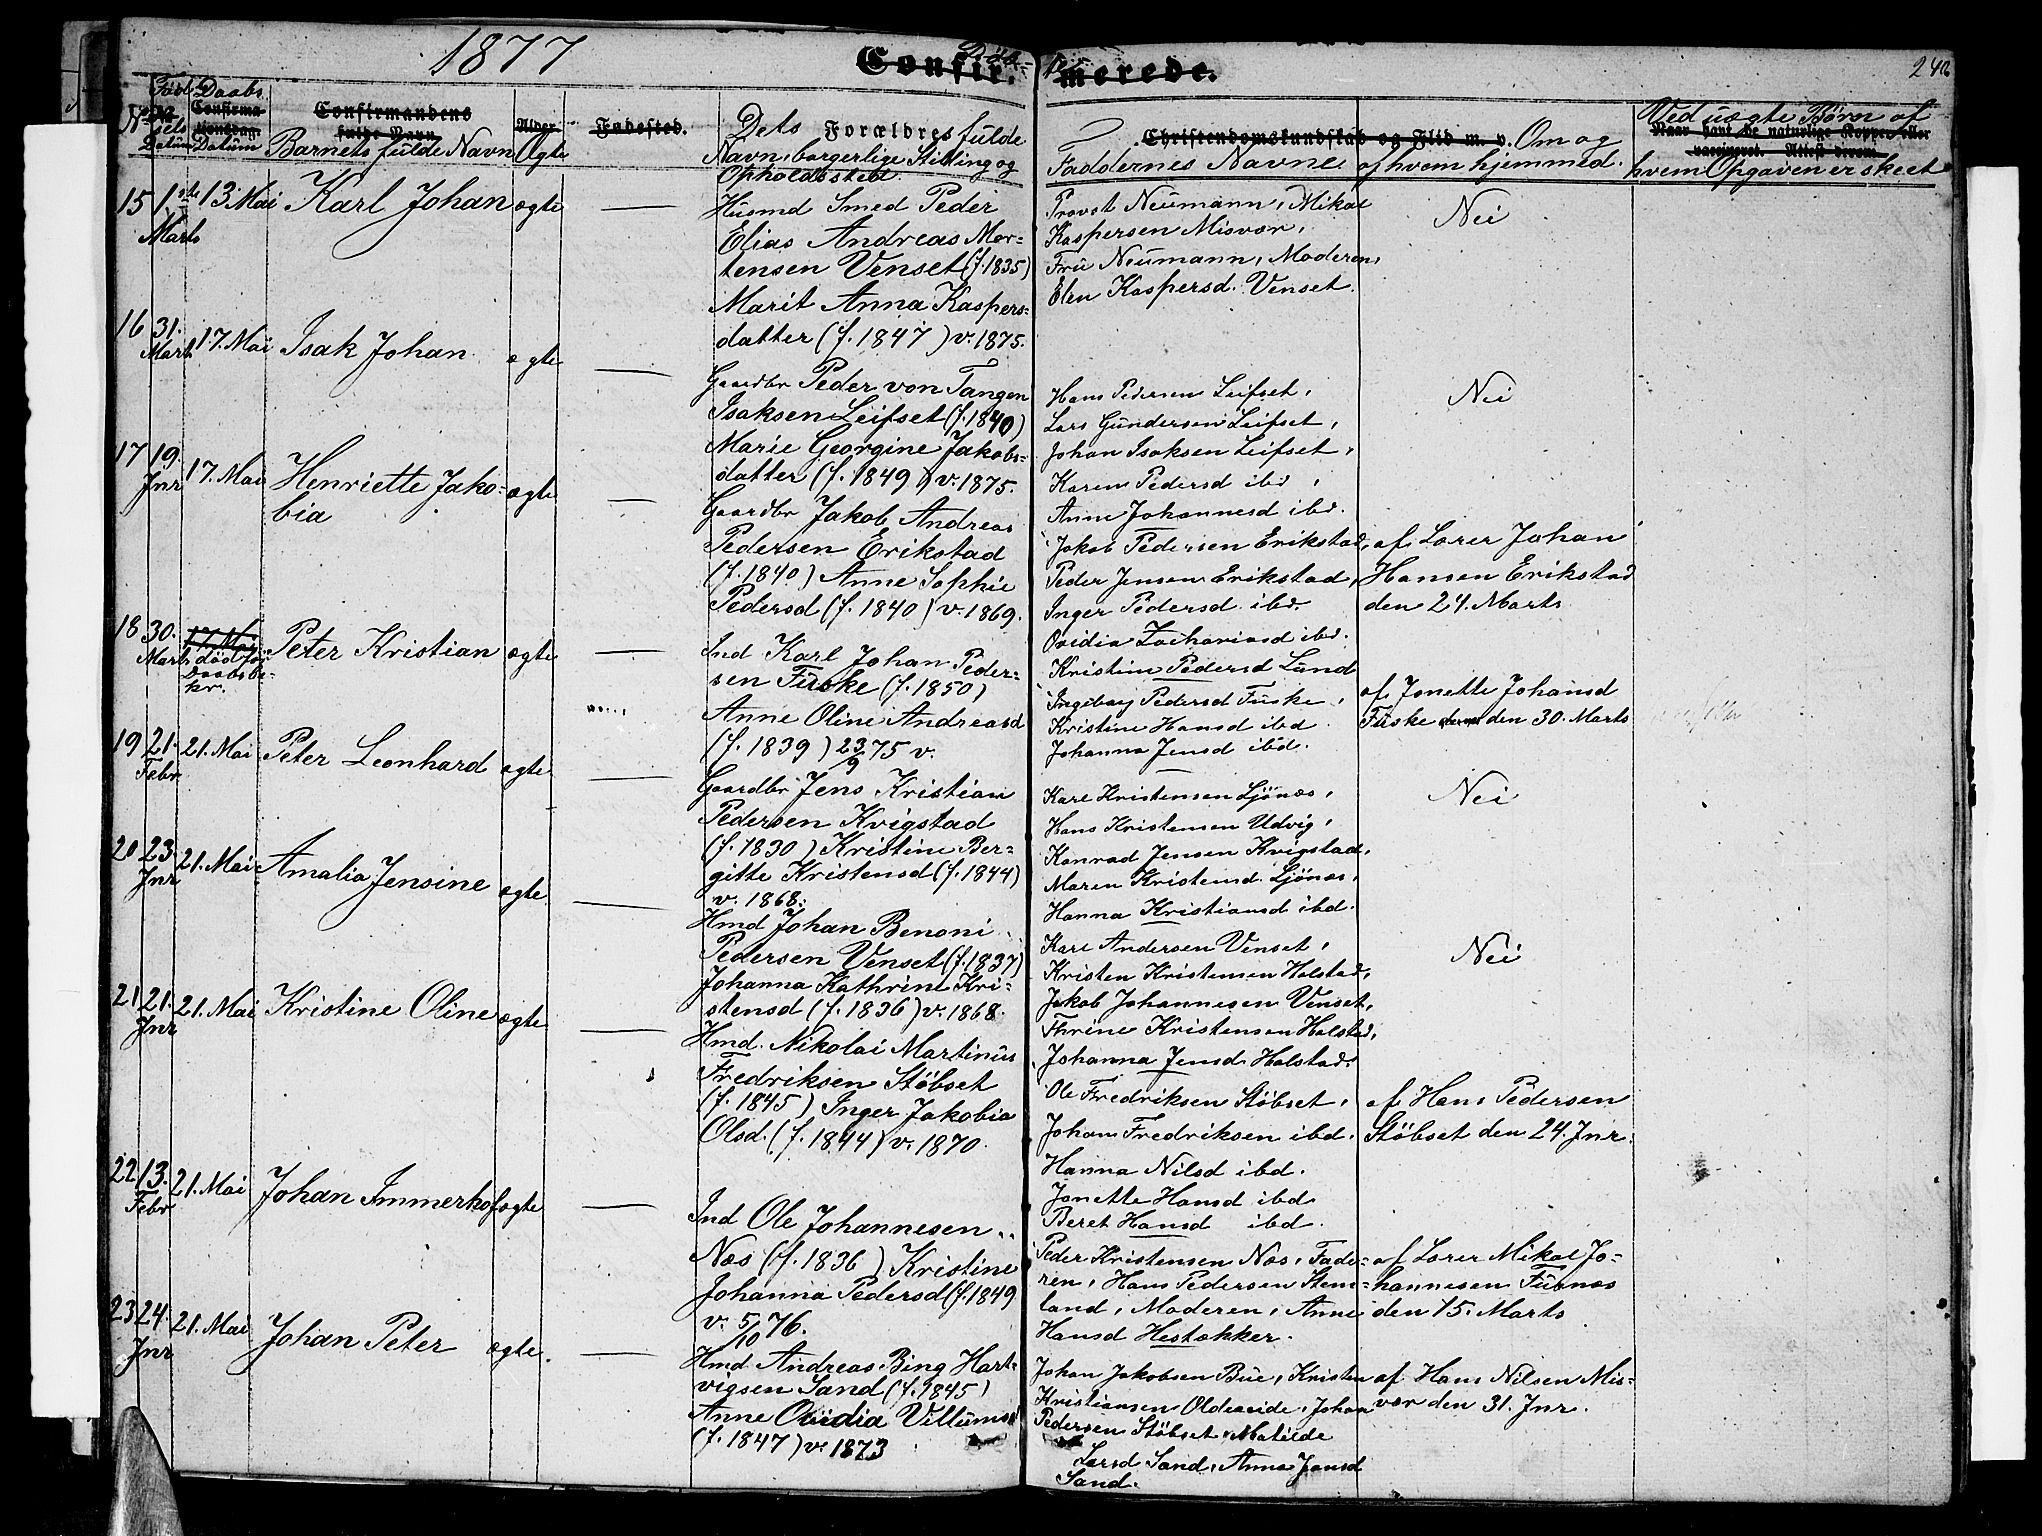 1877
Confirmerede.
Döbte
240
No
Fød
sels
Datum
Daabs
Confirma-
tionsdag.
Datum
Confirmandens
fulde Navn
Barnets fulde Navn
Alder
Ægte
Fødested.
Dets Forældres fulde
Navn, borgerlige Stilling og
Opholdssted
Christendomskundskab og Flid m. v. Om og
Faddernes Navne af hvem hjemmed.
Ved uægte Børn af
Naar havt de naturlige Kopper eller
vaccineret. Attest derom.
hvem Opgaven er skeet
15 1ste Marts 13. Mai Karl Johan ægte
Husmd Smed Peder
Elias Andreas Mor-
tensen Venset (f. 1835)
Marit Anna Kaspers-
datter (f. 1847) v. 1875.
Provst Neumann, Mikal
Kaspersen Misvær,
Fru Neumann, Moderen,
Elen Kaspersd. Venset.
Nei
16 31. Marts 17. Mai Isak Johan ægte
Gaardbr Peder von Tangen
Isaksen Leifset (f. 1840)
Marie Georgine Jakobs-
datter (f. 1849) v. 1875.
Hans Pedersen Leifset,
Lars Gundersen Leifset,
Johan Isaksen Leifset,
Karen Pedersd ibd,
Anne Johannesd ibd.
Nei
17 19. Jnr 17. Mai Henriette Jako-
bia ægte
Gaardbr Jakob Andreas
Pedersen Erikstad
(f. 1840) Anne Sophie
Pedersd (f. 1840) v. 1869.
Jakob Pedersen Erikstad,
Peder Jensen Erikstad,
Inger Pedersd ibd.
Ovidia Zachariasd ibd.
Kristine Pedersd Lund
af Lærer Johan
Hansen Erikstad
den 24. Marts
18 30. Marts 17. Mai
död för
Daabsbe-
kr.
Peter Kristian ægte
Ind Karl Johan Peder-
sen Fuske (f. 1850)
Anne Oline Andreasd
(f. 1839) 23/9 75 v.
Ingeborg Pedersd Fuske,
Kristine Hansd ibd
Johanna Jensd ibd.
af Jonette Johansd
Fuske den 30. Marts
19 21. Febr 21. Mai Peter Leonhard ægte
Gaardbr Jens Kristian
Pedersen Kvigstad
(f. 1830) Kristine Ber-
gitte Kristensd (f. 1844)
v. 1868.
Karl Kristensen Ljönæs,
Hans Kristensen Udvig,
Konrad Jensen Kvigstad,
Maren Kristensd. Ljönæs,
Hanna Kristiansd ibd.
Nei
20 23. Jnr 21. Mai Amalia Jensine ægte
Hmd Johan Benoni
Pedersen Venset (f. 1837)
Johanna Kathrine Kri-
stensd (f. 1836) v. 1868.
Karl Andersen Venset,
Kristen Kristensen Halstad,
Jakob Johannesen Venset,
Thrine Kristensen Halstad,
Johanna Jensd Halstad.
Nei
21 21. Jnr 21. Mai Kristine Oline ægte
Hmd. Nikolai Martinus
Fredriksen Stöbset
(f. 1845) Inger Jakobia
Olsd. (f. 1844) v. 1870.
Ole Fredriksen Stöbset,
Johan Fredriksen ibd.
Hanna Nilsd ibd.
Jonette Hansd ibd
Beret Hansd ibd.
af Hans Pedersen
Stöbset den 24. Jnr.
22 13. Febr 21. Mai Johan Immerkof ægte
Ind Ole Johannesen
Næs (f. 1836) Kristine
Johanna Pedersd (f. 1849
v. 5/10 76.
Peder Kristensen Næs, Fade-
ren, Hans Pedersen Stem-
land, Moderen, Anne
Hansd Hestakker.
af Lærer Mikal Jo-
hannesen Fusnæs
den 15. Marts
23 24. Jnr 21. Mai Johan Peter ægte.
Hmd Andreas Bing Hart-
vigsen Sand (f. 1845)
Anne Ovidia Villumsd
(f. 1847) v. 1873
Johan Jakobsen Bue, Kristen
Kristiansen Oldereide, Johan
Pedersen Stöbset, Matilde
Larsd Sand, Anna Jonsd
Sand.
af Hans Nilsen Mis-
vær den 31. Jnr.